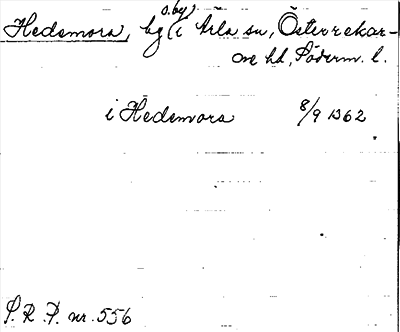 Hedemora, by (s. by) i Ärla sn, Österrekar-
ne hd, Söderm. l.
i Hedemora 8/9 1362
S. R. P. nr. 556